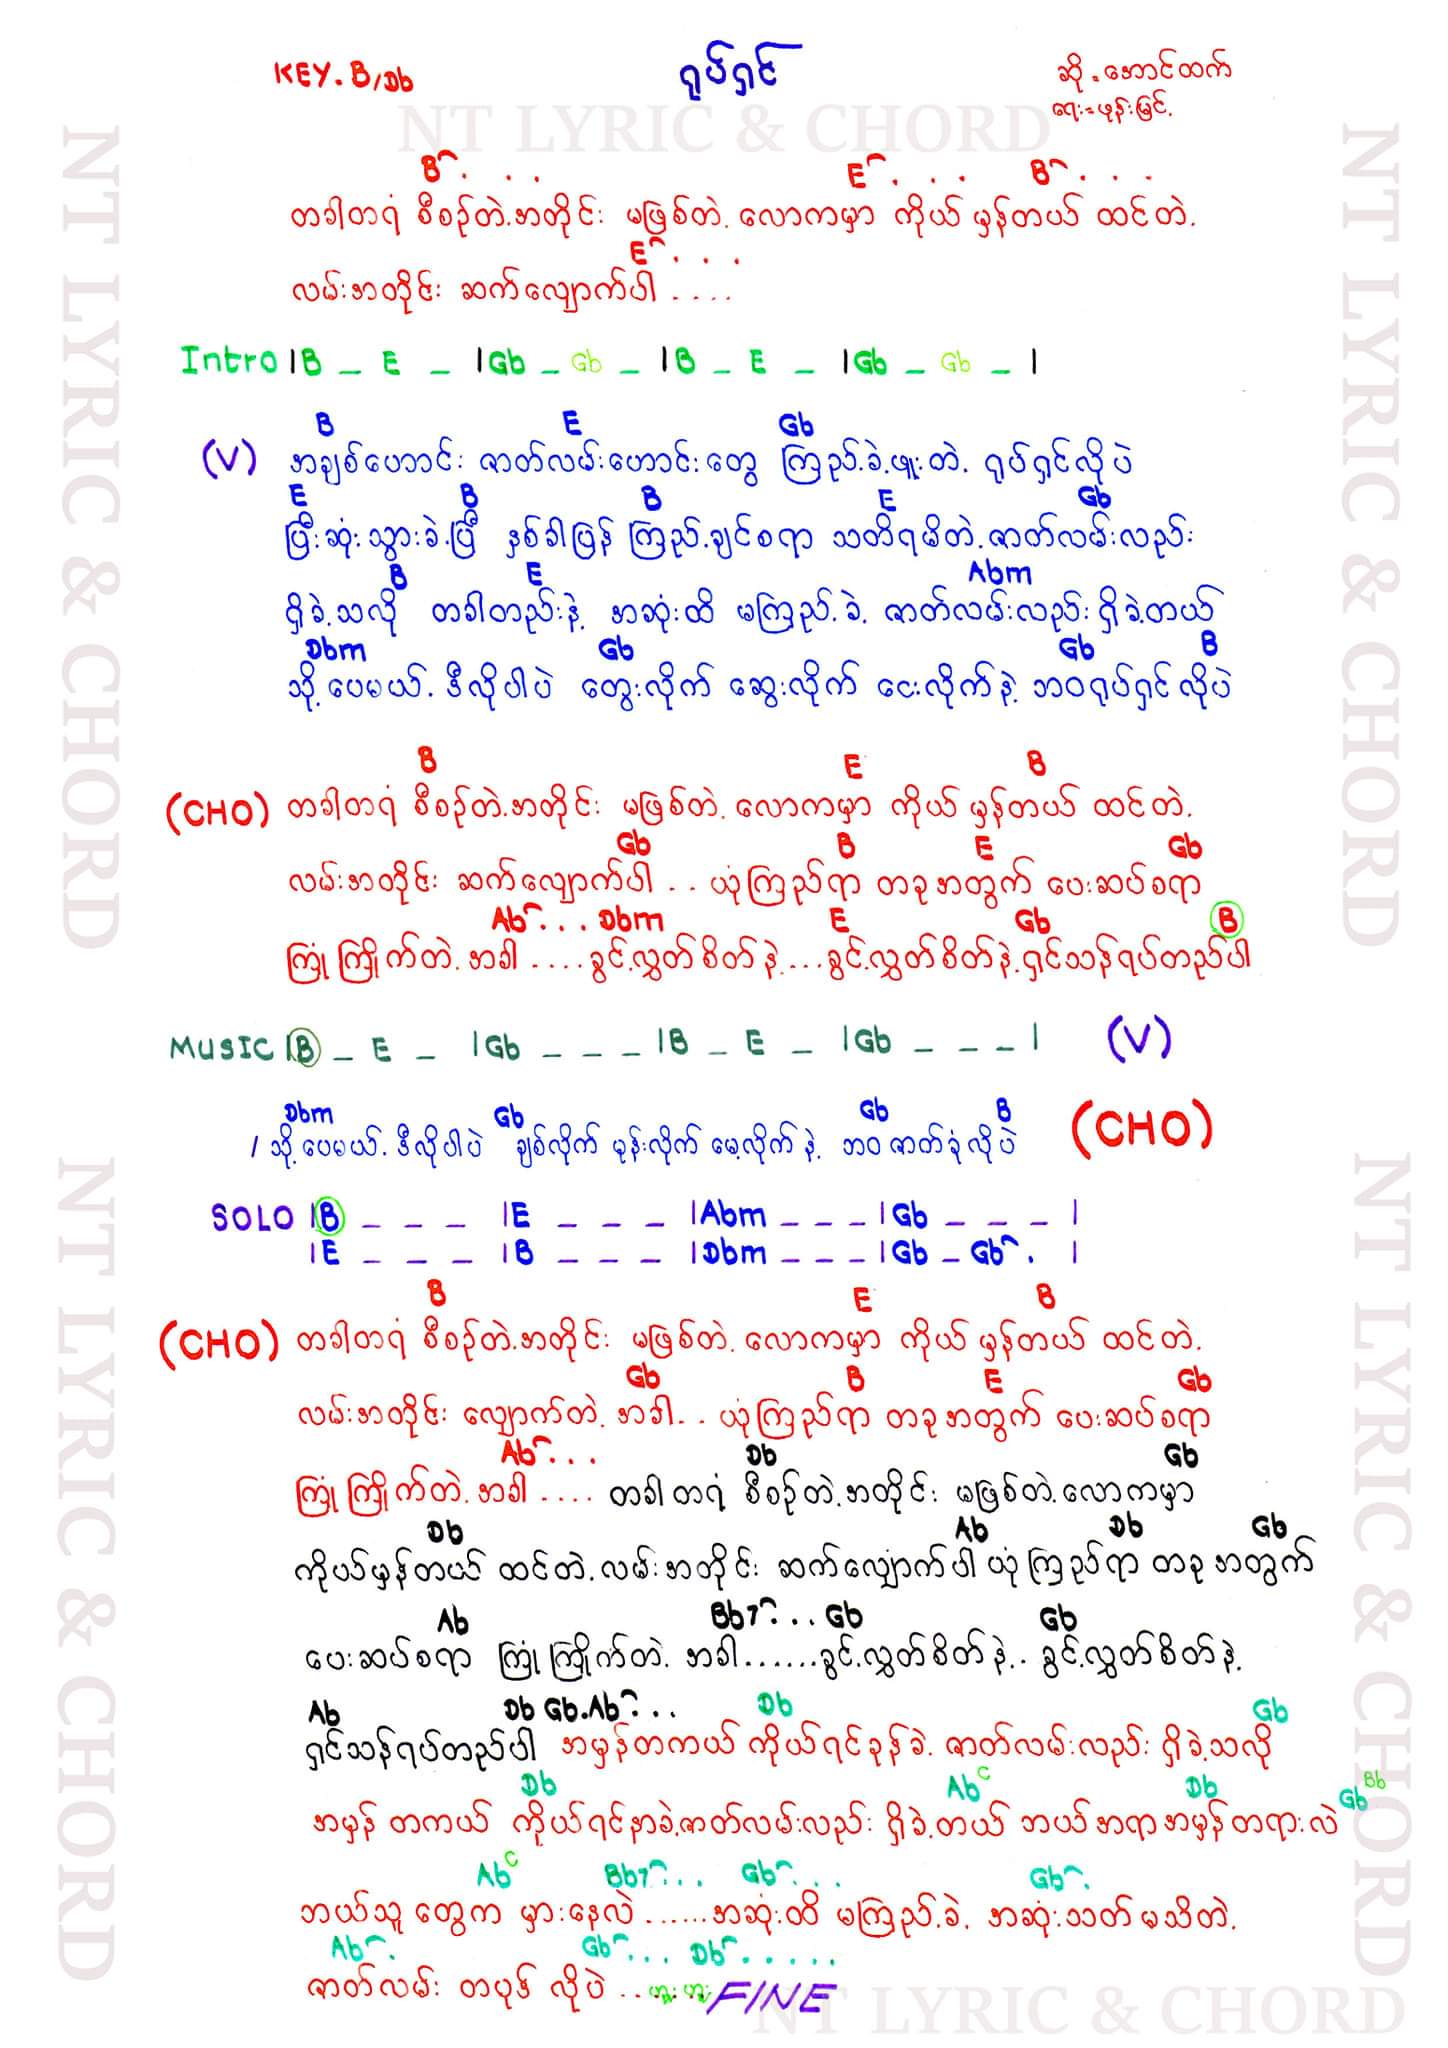 KEY. B/Db ရုပ်ရှင် ဆို - အောင်ထက်
ရေး = ဖုန်းမြင့်
NT LYRIC & CHORD
B^ . . . E^ . . . B^ . . .
တခါတရံ စီစဉ်တဲ့အတိုင်း မဖြစ်တဲ့ လောကမှာ ကိုယ် မှန်တယ် ထင်တဲ့
E^ . . .
လမ်းအတိုင်း ဆက်လျှောက်ပါ . . . .
Intro |B _ E _ |Gb _ Gb _ |B _ E _ |Gb _ Gb _ |
B E Gb
(V) အချစ်ဟောင်း ဇာတ်လမ်းဟောင်းတွေ ကြည့်ခဲ့ဖူးတဲ့ ရုပ်ရှင်လိုပဲ
E B B E Gb
ပြီးဆုံးသွားခဲ့ပြီ နှစ်ခါပြန် ကြည့်ချင်စရာ သတိရမိတဲ့ဇာတ်လမ်းလည်း
B E Abm
ရှိခဲ့သလို တခါတည်းနဲ့ အဆုံးထိ မကြည့်ခဲ့ ဇာတ်လမ်းလည်းရှိခဲ့တယ်
Dbm Gb Gb B
သို့ပေမယ့် ဒီလိုပါပဲ တွေးလိုက် ဆွေးလိုက် ငေးလိုက်နဲ့ ဘဝရုပ်ရှင်လိုပဲ
B E B
(CHO) တခါတရံ စီစဉ်တဲ့အတိုင်း မဖြစ်တဲ့ လောကမှာ ကိုယ် မှန်တယ် ထင်တဲ့
Gb B E Gb
လမ်းအတိုင်း ဆက်လျှောက်ပါ . . ယုံကြည်ရာ တခုအတွက် ပေးဆပ်စရာ
Ab^ . . . Dbm E Gb B
ကြုံကြိုက်တဲ့အခါ . . . . ခွင့်လွှတ်စိတ်နဲ့ . . . ခွင့်လွှတ်စိတ်နဲ့ရှင်သန်ရပ်တည်ပါ
MUSIC |B _ E _ |Gb _ _ _ |B _ E _ |Gb _ _ _ | (V)
Dbm Gb Gb B
/ သို့ပေမယ့် ဒီလိုပါပဲ ချစ်လိုက် မုန်းလိုက် မေ့လိုက်နဲ့ ဘဝဇာတ်ခုံလိုပဲ (CHO)
SOLO |B _ _ _ |E _ _ _ |Abm _ _ _ |Gb _ _ _ |
|E _ _ _ |B _ _ _ |Dbm _ _ _ |Gb _ Gb^ . |
B E B
(CHO) တခါတရံ စီစဉ်တဲ့အတိုင်း မဖြစ်တဲ့ လောကမှာ ကိုယ် မှန်တယ် ထင်တဲ့
Gb B E Gb
လမ်းအတိုင်း လျှောက်တဲ့အခါ . . ယုံကြည်ရာ တခုအတွက် ပေးဆပ်စရာ
Ab^ . . . Db Gb
ကြုံကြိုက်တဲ့အခါ . . . . တခါတရံ စီစဉ်တဲ့အတိုင်း မဖြစ်တဲ့လောကမှာ
Db Ab Db Gb
ကိုယ်မှန်တယ် ထင်တဲ့လမ်းအတိုင်း ဆက်လျှောက်ပါ ယုံကြည်ရာ တခုအတွက်
Ab Bb7^ . . . Gb Gb
ပေးဆပ်စရာ ကြုံကြိုက်တဲ့ အခါ . . . . . . ခွင့်လွှတ်စိတ်နဲ့ . . ခွင့်လွှတ်စိတ်နဲ့
Ab Db Gb.Ab^ . . . Db Gb
ရှင်သန်ရပ်တည်ပါ အမှန်တကယ် ကိုယ်ရင်ခုန်ခဲ့ ဇာတ်လမ်းလည်း ရှိခဲ့သလို
Db Ab C Db Gb Bb
အမှန်တကယ် ကိုယ်ရင်နာခဲ့ဇာတ်လမ်းလည်း ရှိခဲ့တယ် ဘယ်အရာအမှန်တရားလဲ
Ab C Bb7^ . . . Gb^ . . . Gb^ .
ဘယ်သူတွေက မှားနေလဲ . . . . . . အဆုံးထိ မကြည့်ခဲ့ အဆုံးသတ်မသိတဲ့
Ab^ . Gb^ . . . Db^ . . . . . .
ဇာတ်လမ်း တပုဒ် လိုပဲ . . . ဟူး ဟူး FINE
NT LYRIC & CHORD
NT LYRIC & CHORD
NT LYRIC & CHORD
NT LYRIC & CHORD
NT LYRIC & CHORD